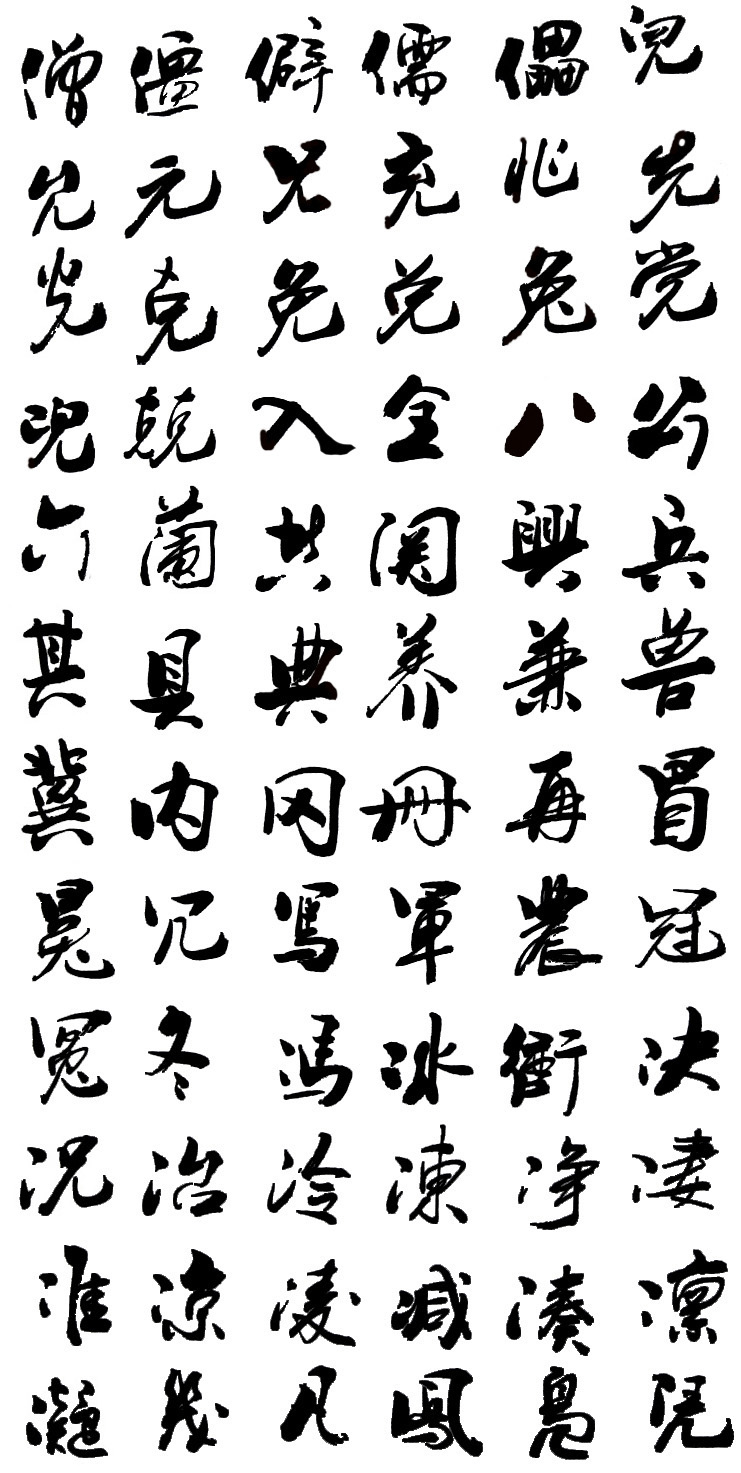 僧僵僻儒儡兒
允元兄充兆先
光克免兑兔党
兜兢入全八公
六蘭共関興兵
其具典养兼兽
冀内冈册再冒
冕冗写軍農冠
冤冬馮冰衝决
况冶冷凍净凄
准凉凌减凑凛
凝幾凡鳳凫凭